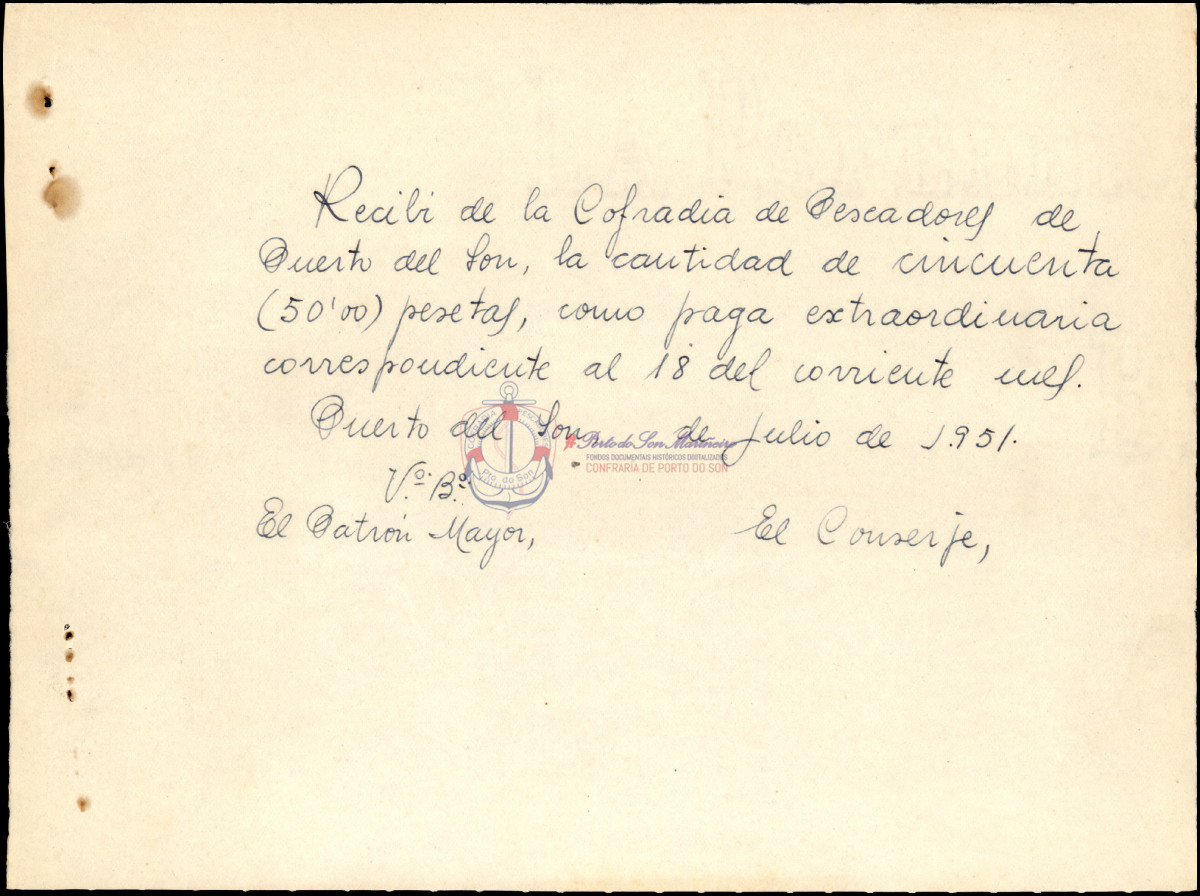 Recibi de la Cofradia de Pescadores de
Puerto del Son, la cantidad de cincuenta
(50'00) pesetas, como paga extraordinaria
correspondiente al 18 del corriente mes.
Puerto del Son, de julio de 1.951.
Vº. Bº.
El Patrón Mayor,
El Conserje,
Pto. do Son
#Porto do Son Mariñeiro
FONDOS DOCUMENTAIS HISTÓRICOS DIGITALIZADOS
CONFRARÍA DE PORTO DO SON